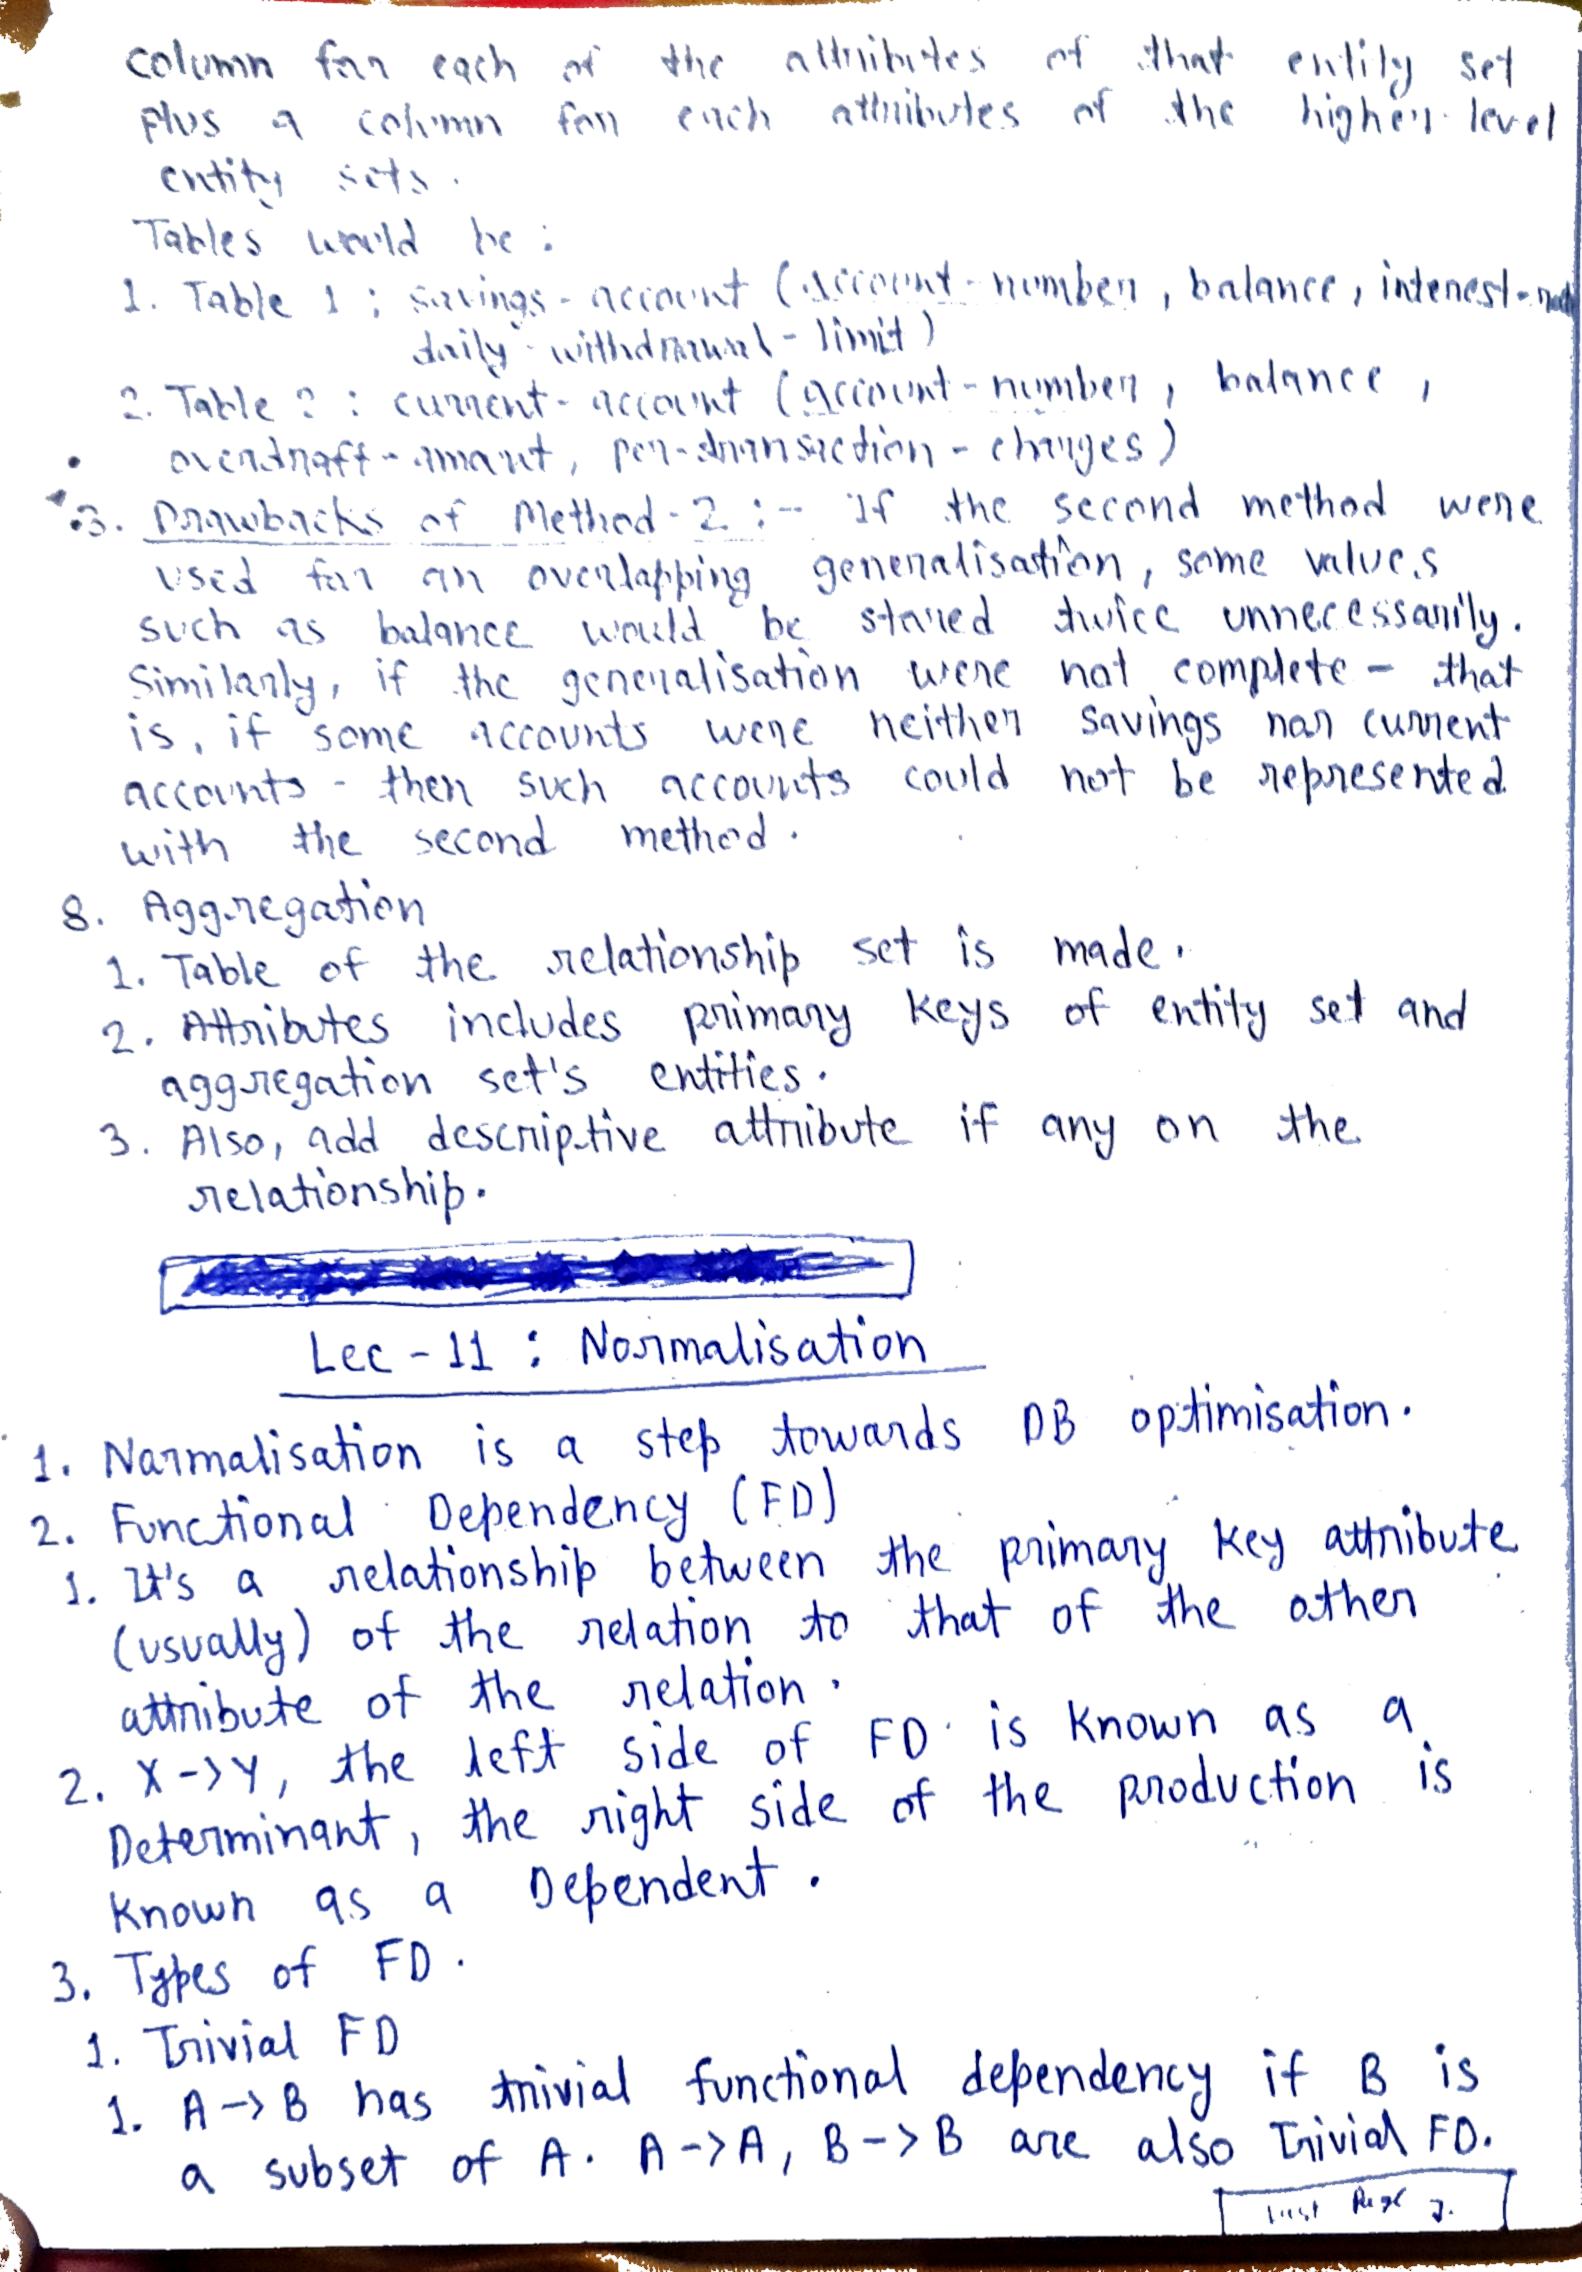 column for each of the attributes of that entity set
plus a column for each attributes of the higher level
entity sets.
Tables would be :
1. Table 1 : savings-account (account-number, balance, interest-rate
daily-withdrawal-limit)
2. Table 2 : current-account (account-number, balance,
overdraft-amaut, per-transaction-charges)
3. Drawbacks of Method-2 :- If the second method were
used for an overlapping generalisation, some values
such as balance would be stored twice unnecessarily.
Similarly, if the generalisation were not complete - that
is, if some accounts were neither savings nor current
accounts - then such accounts could not be represented
with the second method.
8. Aggregation
1. Table of the relationship set is made.
2. Attributes includes primary keys of entity set and
aggregation set's entities.
3. Also, add descriptive attribute if any on the
relationship.
Lec - 11 : Normalisation
1. Normalisation is a step towards DB optimisation.
2. Functional Dependency (FD)
1. It's a relationship between the primary key attribute
(usually) of the relation to that of the other
attribute of the relation.
2. X->Y, the left side of FD is known as a
Determinant, the right side of the production is
known as a Dependent.
3. Types of FD.
1. Trivial FD
1. A->B has trivial functional dependency if B is
a subset of A. A->A, B->B are also Trivial FD.
Last Page